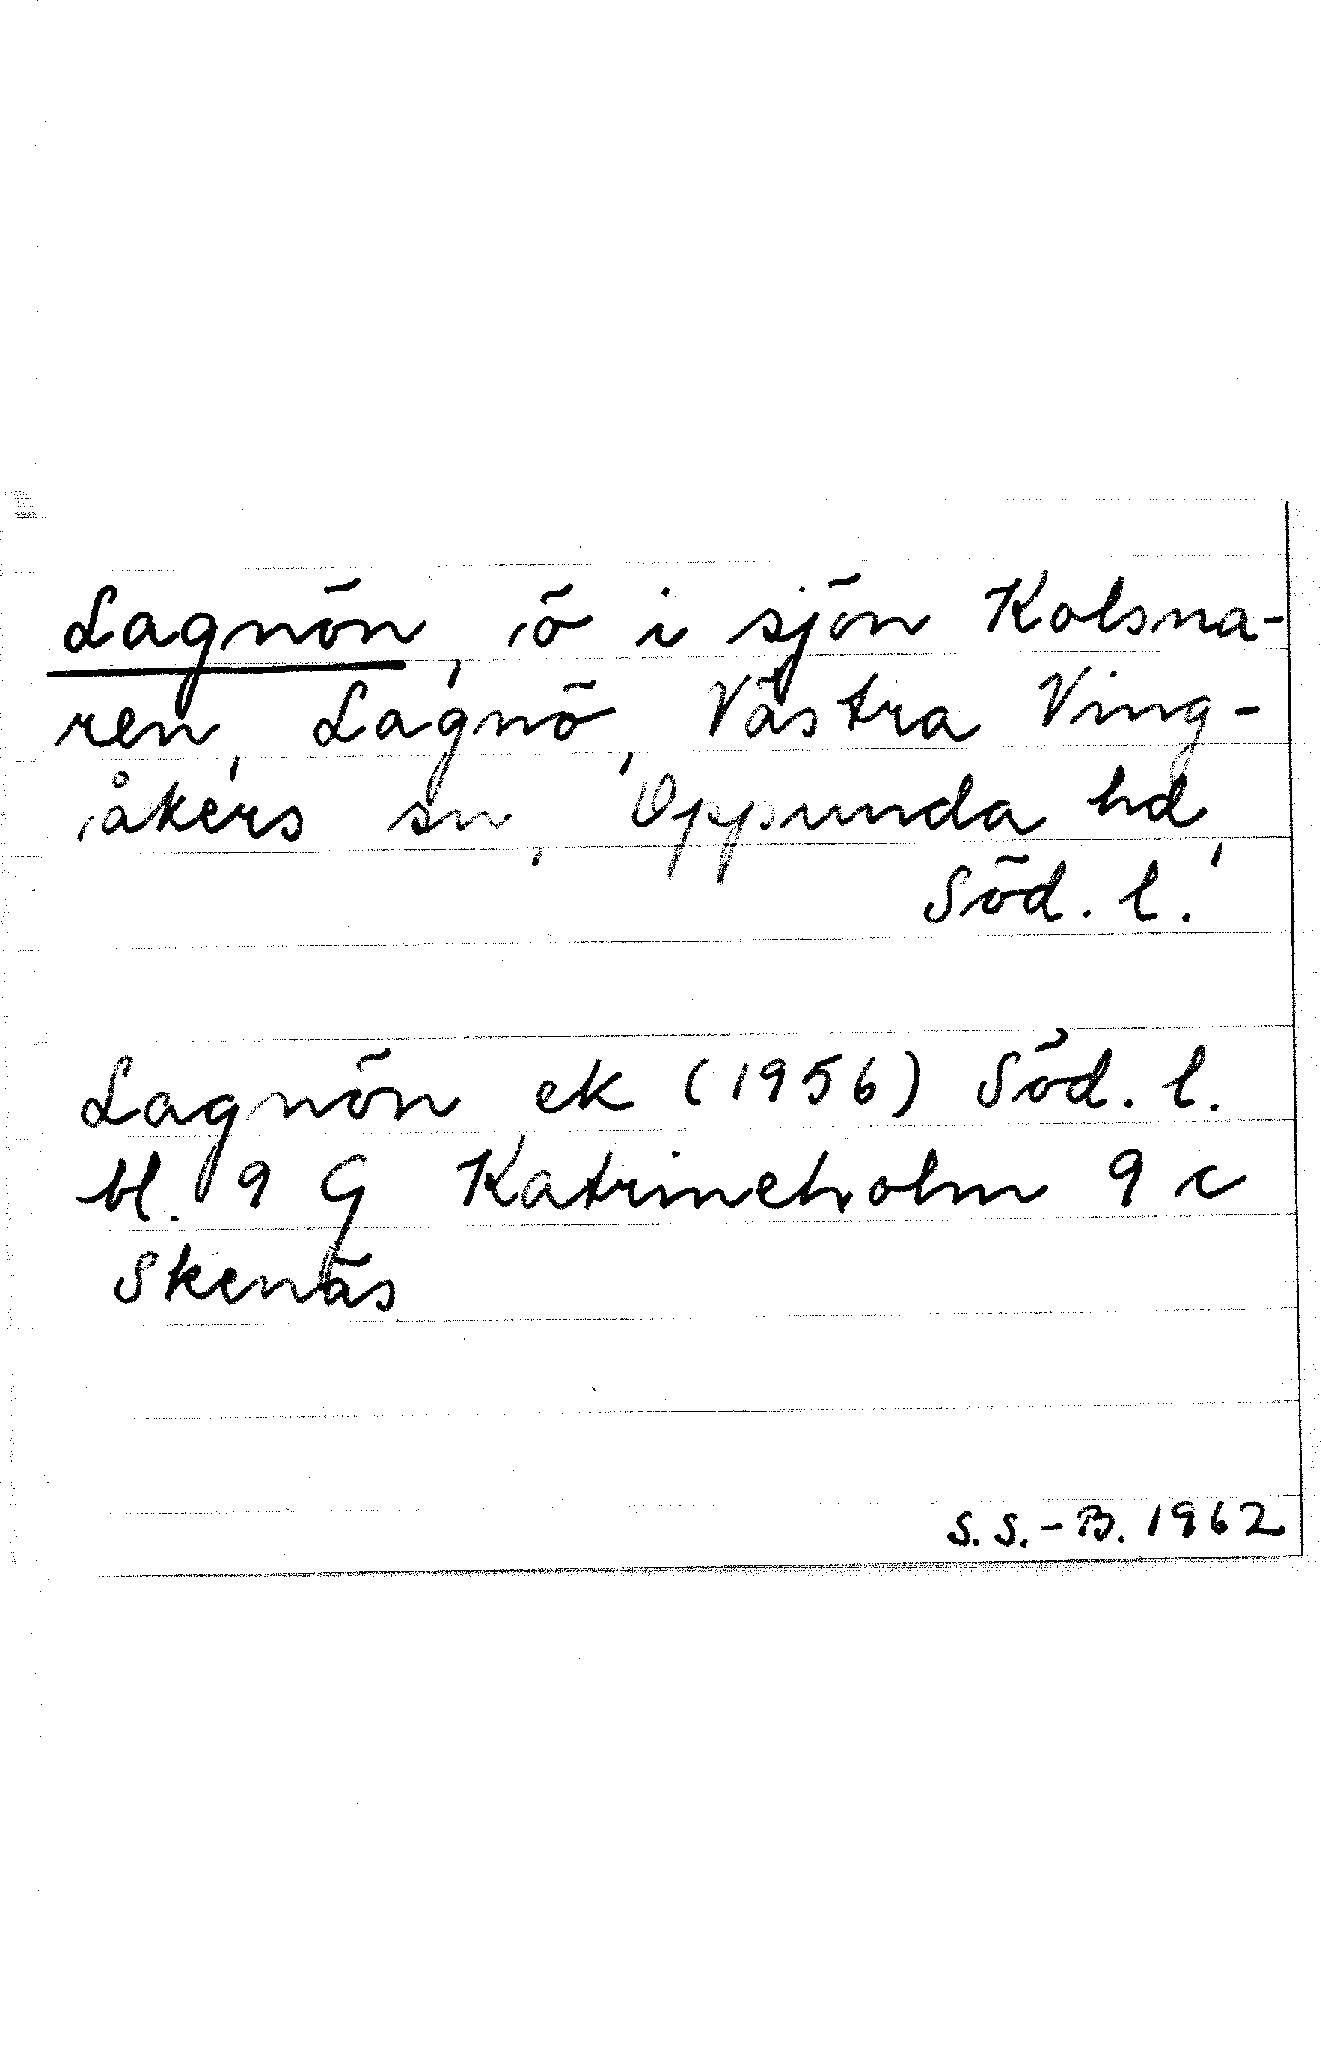 Lagnön, ö i sjön Kolsna-
ren, Lagnö, Västra Ving-
åkers sn, Oppunda hd,
Söd. l.
Lagnön ek (1956) Söd. l.
bl. 9 G Katrineholm 9 c
Skenäs
S. S.-B. 1962